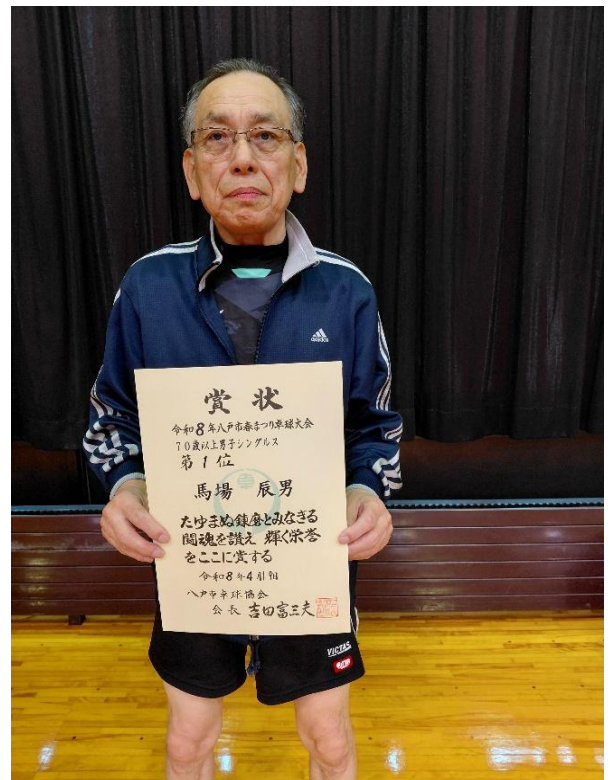 adidas
賞状
令和8年八戸市春まつり卓球大会
70歳以上男子シングルス
第1位
馬場 辰男
たゆまぬ錬磨とみなぎる
闘魂を讃え 輝く栄誉
をここに賞する
令和8年4月
八戸市卓球協会
会長 吉田富三夫
VICTAS